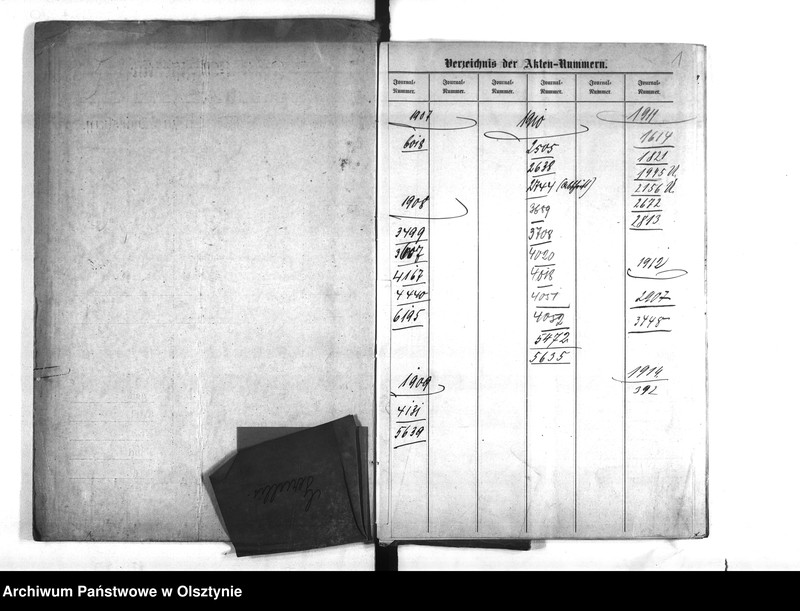 1
Verzeichnis der Akten-Nummern.
Journal-Nummer.
Journal-Nummer.
Journal-Nummer.
Journal-Nummer.
Journal-Nummer
Journal-Nummer.
1907
6018
1908
3499
3607
4167
4440
6195
1909
4131
5639
1910
2505
2638
2744
3659
3708
4020
4018
4051
4052
5472
5635
1911
1614
1821
1995 U.
2156 U.
2672
2813
1912
2907
3748
1914
392
Archiwum Państwowe w Olsztynie